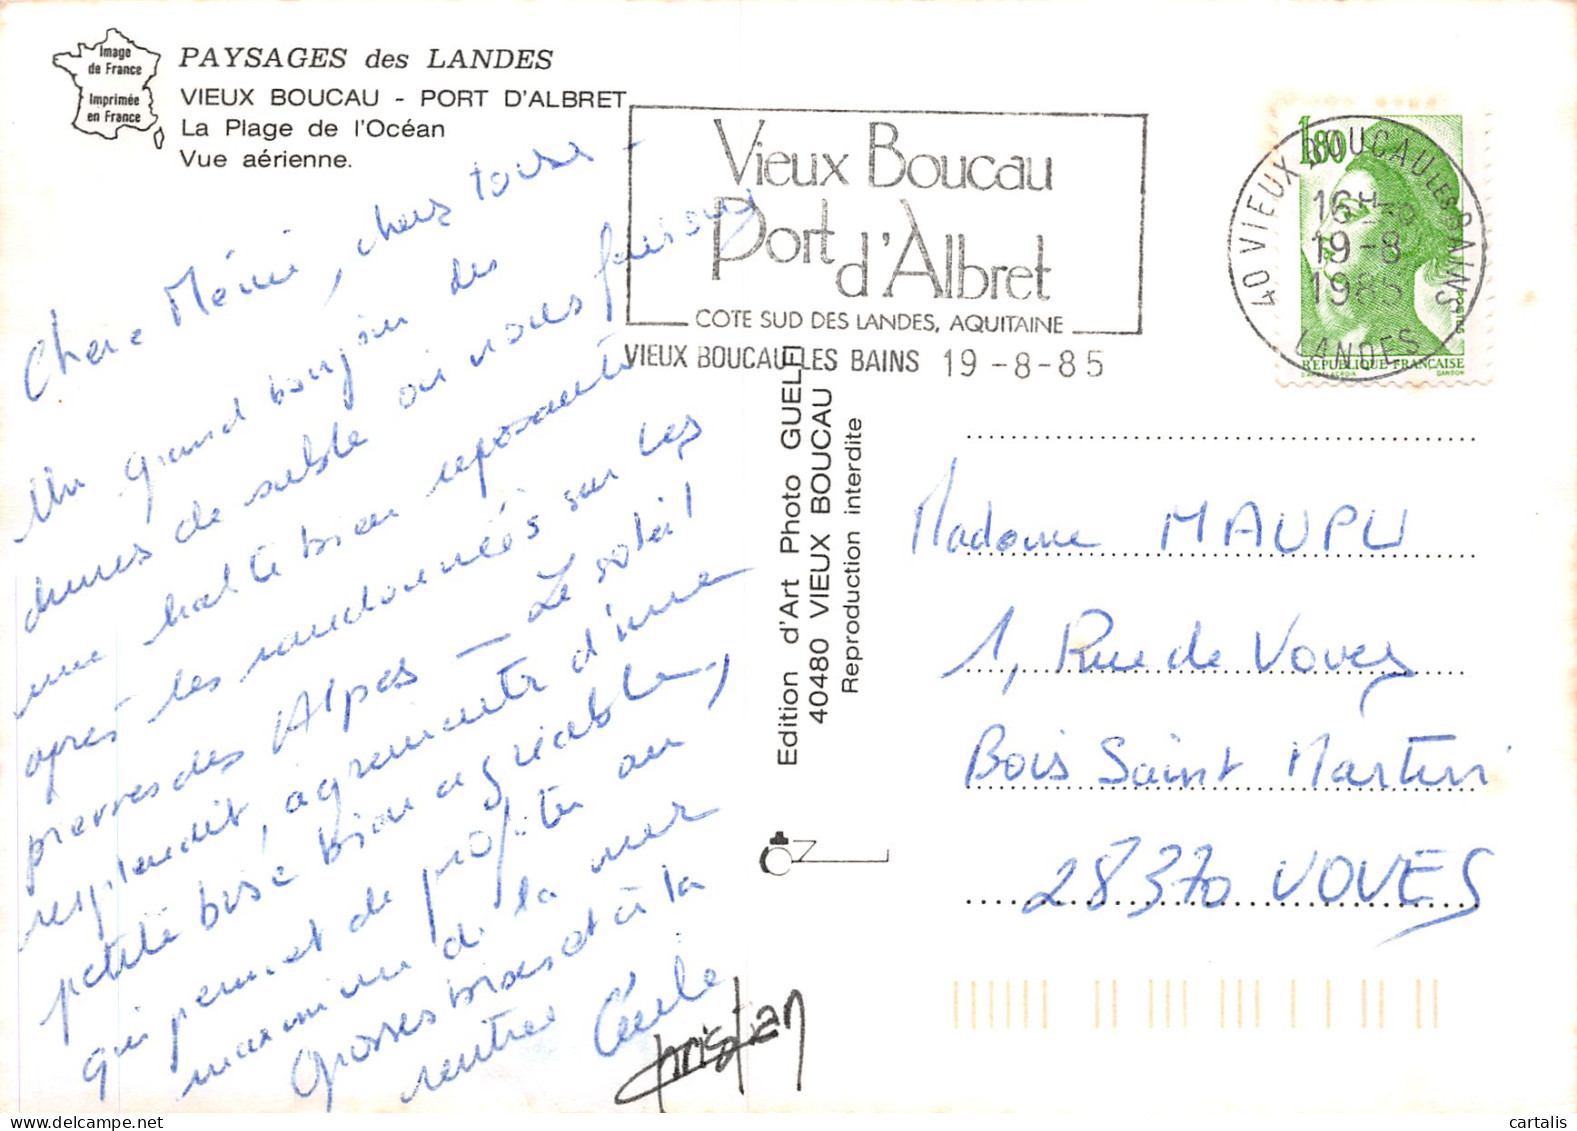 Image
de France
Imprimée
en France
PAYSAGES des LANDES
VIEUX BOUCAU - PORT D'ALBRET
La Plage de l'Océan
Vue aérienne.
Chère Mémé, chers tous -
Un grand bonjour des
dunes de sable où nous faisons
une halte bien reposante
après les randonnées sur les
pierres des Alpes - Le soleil
resplendit, agrémenté d'une
petite bise bien agréable,
qui permet de profiter au
maximum de la mer
Grosses bises et à la
rentrée Cécile
Christian
Vieux Boucau
Port
d'Albret
COTE SUD DES LANDES, AQUITAINE
VIEUX BOUCAU LES BAINS 19-8-85
1,80
POSTES
REPUBLIQUE FRANÇAISE
D'APRES DELACROIX
GANDON
40 VIEUX BOUCAU LES BAINS
16H
19-8
1985
LANDES
Edition d'Art Photo GUELF
40480 VIEUX BOUCAU
Reproduction interdite
Madame MAUPU
1, Rue de Voves
Bois Saint Martin
28370 VOVES
cartalis